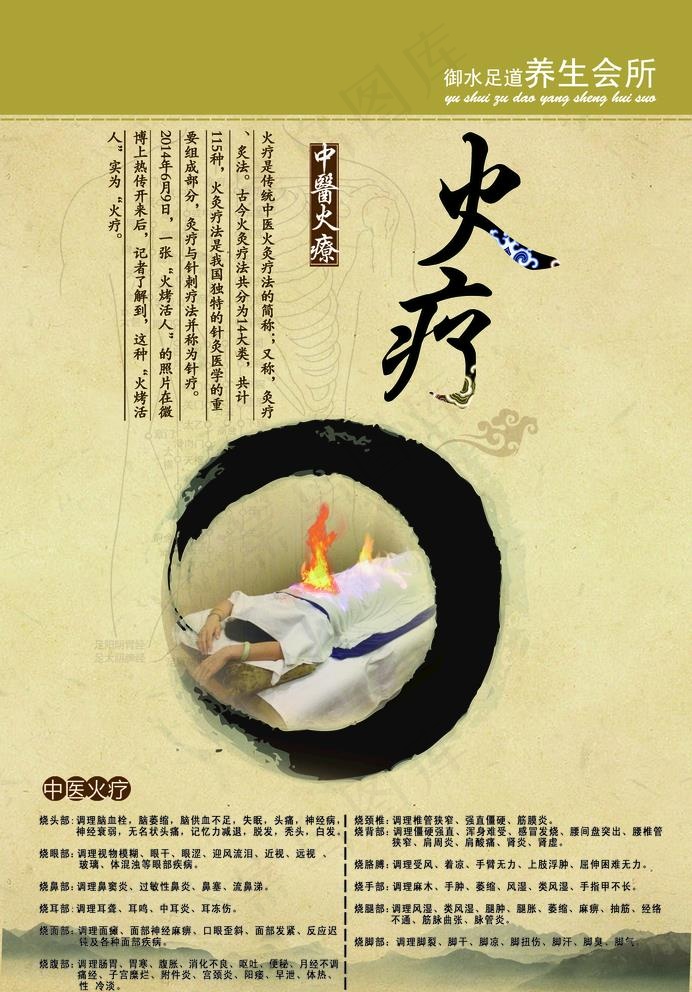 御水足道养生会所
yu shui zu dao yang sheng hui suo
火疗
中醫火療
火疗是传统中医火灸疗法的简称；又称，灸疗
、灸法。古今火灸疗法共分为14大类，共计
115种，火灸疗法是我国独特的针灸医学的重
要组成部分，灸疗与针刺疗法并称为针疗。
2014年6月9日，一张“火烤活人”的照片在微
博上热传开来后，记者了解到，这种“火烤活
人”实为“火疗。
足阳阴胃经
足太阴脾经
中医火疗
烧头部：调理脑血栓，脑萎缩，脑供血不足，失眠，头痛，神经病，
神经衰弱，无名状头痛，记忆力减退，脱发，秃头，白发。
烧眼部：调理视物模糊、眼干、眼涩、迎风流泪、近视、远视 、
玻璃、体混浊等眼部疾病。
烧鼻部：调理鼻窦炎、过敏性鼻炎、鼻塞、流鼻涕。
烧耳部：调理耳聋、耳鸣、中耳炎、耳冻伤。
烧面部：调理面瘫、面部神经麻痹、口眼歪斜、面部发紧、反应迟
钝及各种面部疾病。
烧腹部：调理肠胃、胃寒、腹胀、消化不良、呕吐、便秘、月经不调
痛经、子宫糜烂、附件炎、宫颈炎、阳痿、早泄、体热、
性 冷淡。
烧颈椎：调理椎管狭窄、强直僵硬、筋膜炎。
烧背部：调理僵硬强直、浑身难受、感冒发烧、腰间盘突出、腰椎管
狭窄、肩周炎、肩酸痛、肾炎、肾虚。
烧胳膊：调理受风、着凉、手臂无力、上肢浮肿、屈伸困难无力。
烧手部：调理麻木、手肿、萎缩、风湿、类风湿、手指甲不长。
烧腿部：调理风湿、类风湿、腿肿、腿胀、萎缩、麻痹、抽筋、经络
不通、筋脉曲张、脉管炎。
烧脚部：调理脚裂、脚干、脚凉、脚扭伤、脚汗、脚臭、脚气